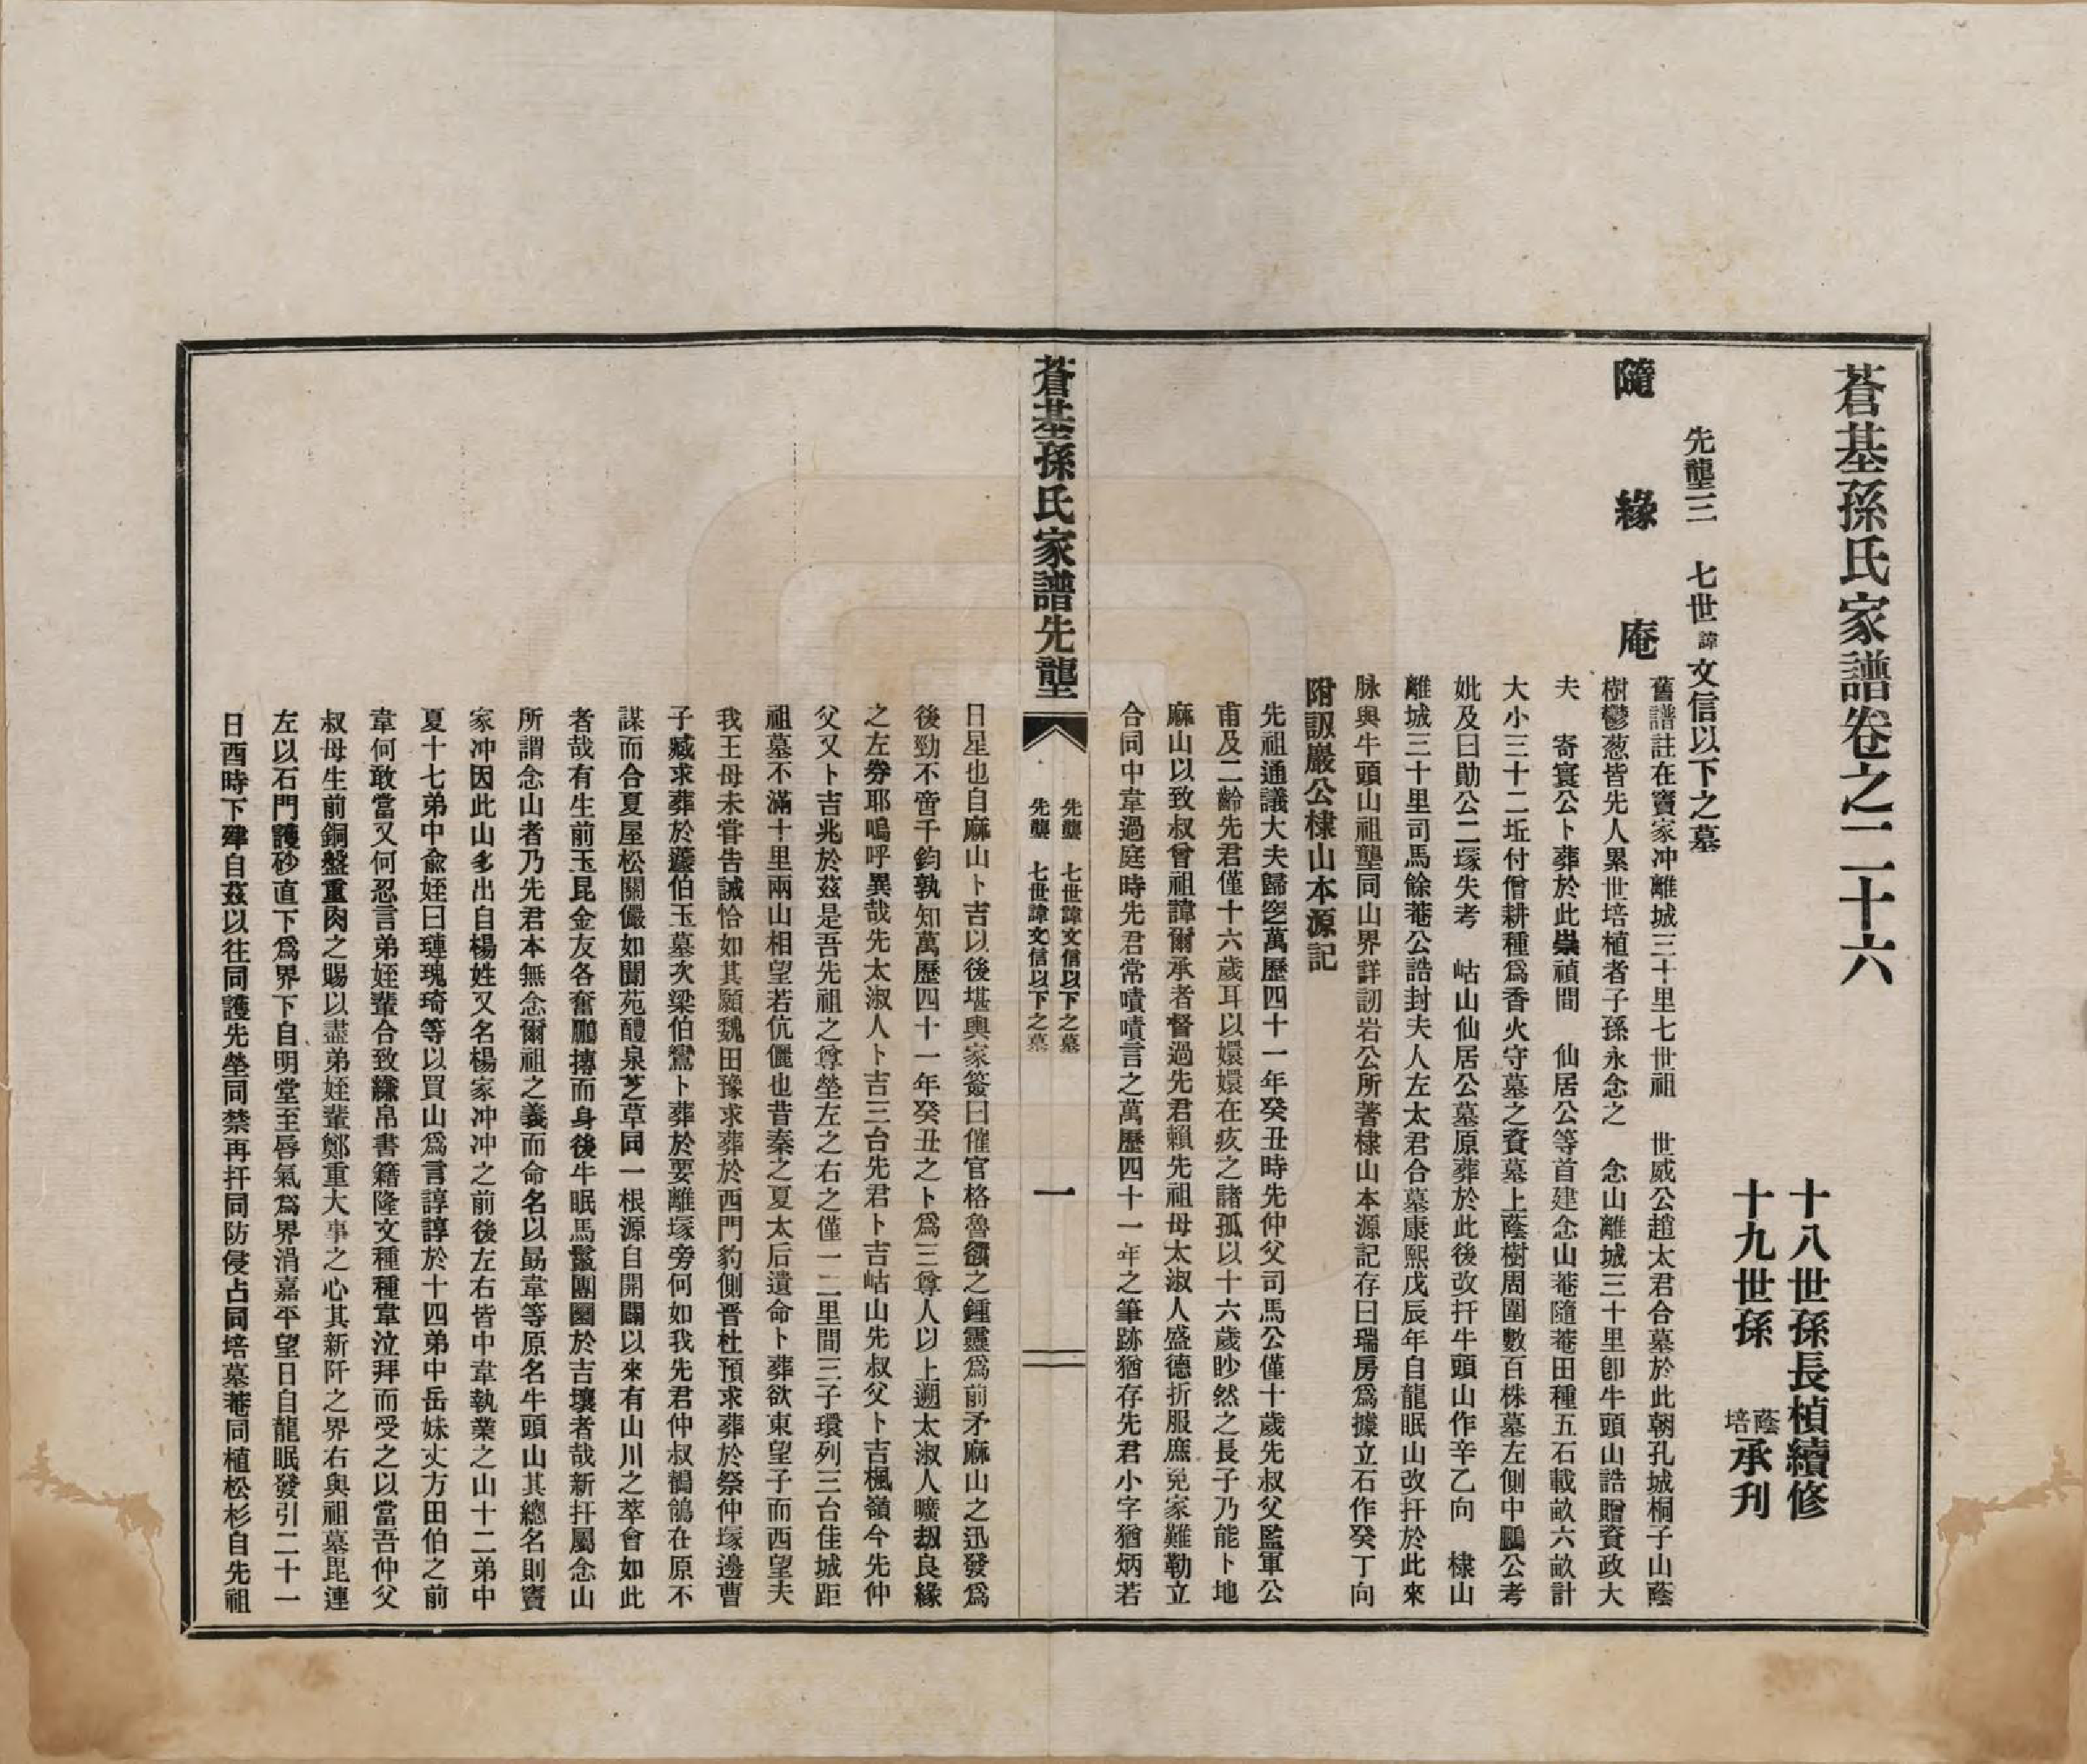 蒼基孫氏家譜卷之二十六
十八世孫長楨續修
十九世孫蔭培承刋
先壟三　七世諱文信以下之墓
隨緣庵
舊譜註在竇家冲離城三十里七世祖　世威公趙太君合墓於此朝孔城桐子山蔭
樹鬱葱皆先人累世培植者子孫永念之　念山離城三十里卽牛頭山誥贈資政大
夫　寄寰公卜葬於此崇禎間　仙居公等首建念山菴隨菴田種五石載畝六畝計
大小三十二坵付僧耕種爲香火守墓之資墓上蔭樹周圍數百株墓左側中鵬公考
妣及曰勛公二塚失考　岵山仙居公墓原葬於此後改扦牛頭山作辛乙向　棣山
離城三十里司馬餘菴公誥封夫人左太君合墓康熙戊辰年自龍眠山改扦於此來
脉與牛頭山祖壟同山界詳訒岩公所著棣山本源記存曰瑞房爲據立石作癸丁向
附訒巖公棣山本源記
先祖通議大夫歸窆萬歷四十一年癸丑時先仲父司馬公僅十歲先叔父監軍公
甫及二齡先君僅十六歲耳以嬛嬛在疚之諸孤以十六歲眇然之長子乃能卜地
麻山以致叔曾祖諱爾承者督過先君賴先祖母太淑人盛德折服庶免家難勒立
合同中韋過庭時先君常嘖嘖言之萬歷四十一年之筆跡猶存先君小字猶炳若
蒼基孫氏家譜先壟
先壟　七世諱文信以下之墓
先壟　七世諱文信以下之墓
一
日星也自麻山卜吉以後堪輿家簽曰催官格魯頟之鍾靈爲前矛麻山之迅發爲
後勁不啻千鈞孰知萬歷四十一年癸丑之卜爲三尊人以上遡太淑人曠刼良緣
之左券耶嗚呼異哉先太淑人卜吉三台先君卜吉岵山先叔父卜吉楓嶺今先仲
父又卜吉兆於茲是吾先祖之尊塋左之右之僅一二里間三子環列三台佳城距
祖墓不滿十里兩山相望若伉儷也昔秦之夏太后遺命卜葬欲東望子而西望夫
我王母未甞告誡恰如其願魏田豫求葬於西門豹側晋杜預求葬於祭仲塚邊曹
子臧求葬於蘧伯玉墓次梁伯鸞卜葬於要離塚旁何如我先君仲叔鶺鴒在原不
謀而合夏屋松關儼如閬苑醴泉芝草同一根源自開闢以來有山川之萃會如此
者哉有生前玉昆金友各奮鵬摶而身後牛眠馬鬣團圝於吉壤者哉新扦屬念山
所謂念山者乃先君本無念爾祖之義而命名以勗韋等原名牛頭山其總名則竇
家冲因此山多出自楊姓又名楊家冲冲之前後左右皆中韋執業之山十二弟中
夏十七弟中僉姪曰璉瑰琦等以買山爲言諄諄於十四弟中岳妹丈方田伯之前
韋何敢當又何忍言弟姪輩合致縑帛書籍隆文種種韋泣拜而受之以當吾仲父
叔母生前銅盤重肉之賜以盡弟姪輩鄭重大事之心其新阡之界右與祖墓毘連
左以石門護砂直下爲界下自明堂至唇氣爲界涓嘉平望日自龍眠發引二十一
日酉時下殔自茲以往同護先塋同禁再扦同防侵占同培墓菴同植松杉自先祖